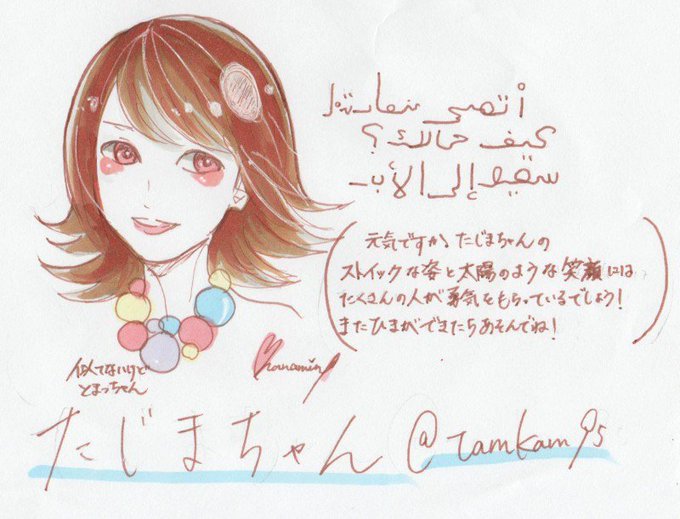 كيف حالك؟
إلى الأبد
(元気ですか、たじまちゃんの
ストイックな姿と太陽のような笑顔には
たくさんの人が勇気をもらっているでしょう!
またひまができたらあそんでね!)
似てないけど
とまっちゃん
hanamin
たじまちゃん @tamkam95